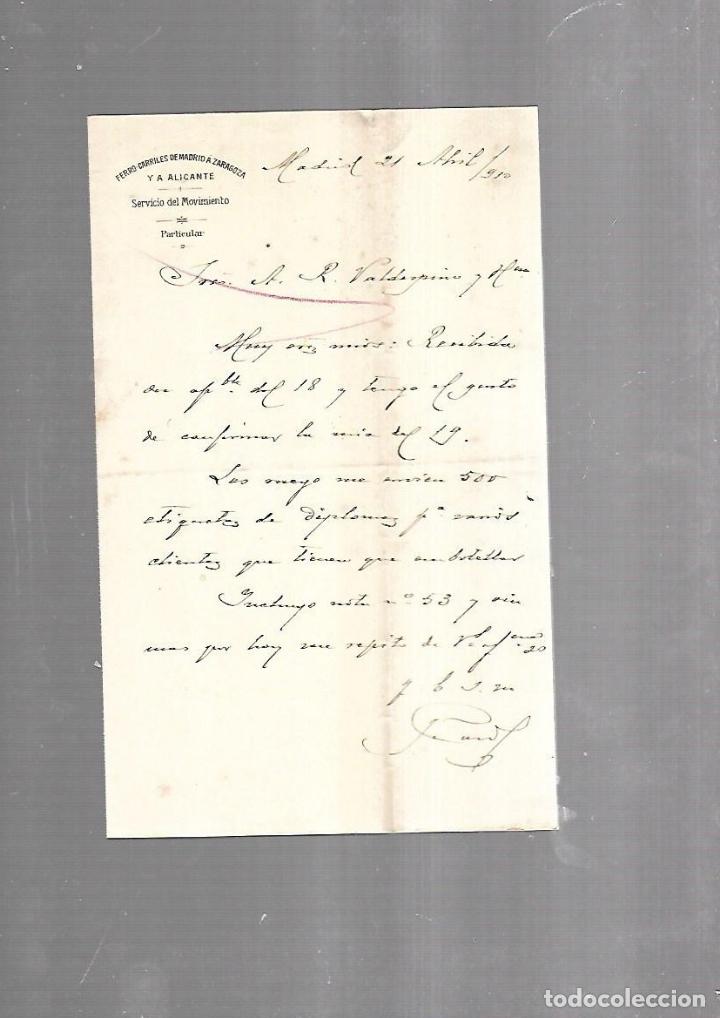 FERRO-CARRILES DE MADRID A ZARAGOZA
Y A ALICANTE
Servicio del Movimiento
Particular
Madrid 21 Abril/910
Sres. A. R. Valdespino y Hno.
Muy Sres mios: Recibida
su apble. del 18 y tengo el gusto
de confirmar la mia del 19.
Les ruego me envien 500
etiquetas de Diplomas pa. varios
clientes que tienen que embotellar
Incluyo nota nº 53 y sin
mas por hoy me repito de Vds
q b s. m
todocoleccion.net